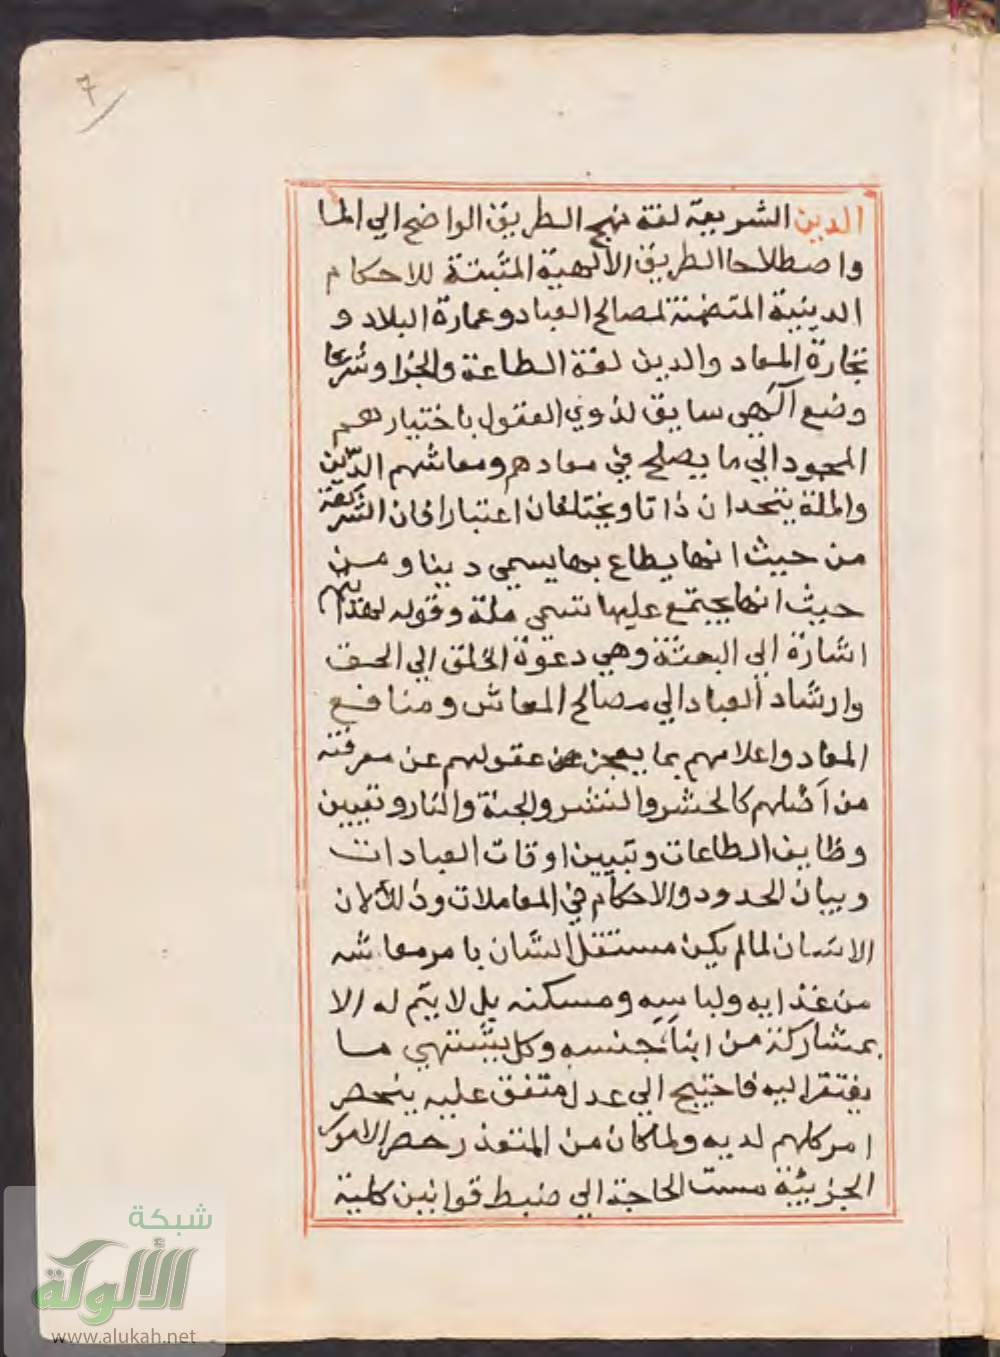 ٧
الدين الشريعة لغة نهج الطريق الواضح الي الما
واصطلاحا الطريق الالهية المثبتة للاحكام
الدينية المتضمنة لمصالح العباد وعمارة البلاد و
نجارة المعاد والدين لغة الطاعة والجزا وشرعا
وضع آلهي سايق لذوي العقول باختيارهم
المحمود الي ما يصلح في معادهم ومعاشهم الدّين
والملة يتحدان ذاتا ويختلفان اعتبارا فان الشريعة
من حيث انها يطاع بها يسمي دينا ومن
حيث انها يجتمع عليها تسمي ملة وقوله لهدايتهم
اشارة الي البعثة وهي دعوة الخلق الي الحق
وارشاد العباد الي مصالح المعاش ومنافع
المعاد واعلامهم بما يعجز عن عقولهم عن معرفته
من كالحشر والنشر والجنة والنار وتعيين
وظايف الطاعات وتبيين اوقات العبادات
وبيان الحدود والاحكام في المعاملات وذلك لان
الانسان لما لم يكن مستقل الشان بامر معاشه
من غذايه ولباسه ومسكنه بل لا يتم له الا
بمشاركة من ابناء جنسه وكل يشتهي ما
يفتقر اليه فاحتيج الي عدل متفق عليه ينحصر
امر كلهم لديه ولما كان من المتعذر حصر الامور
الجزيئة مست الحاجة الي ضبط قوانين كلية
شبكة
الألوكة
www.alukah.net